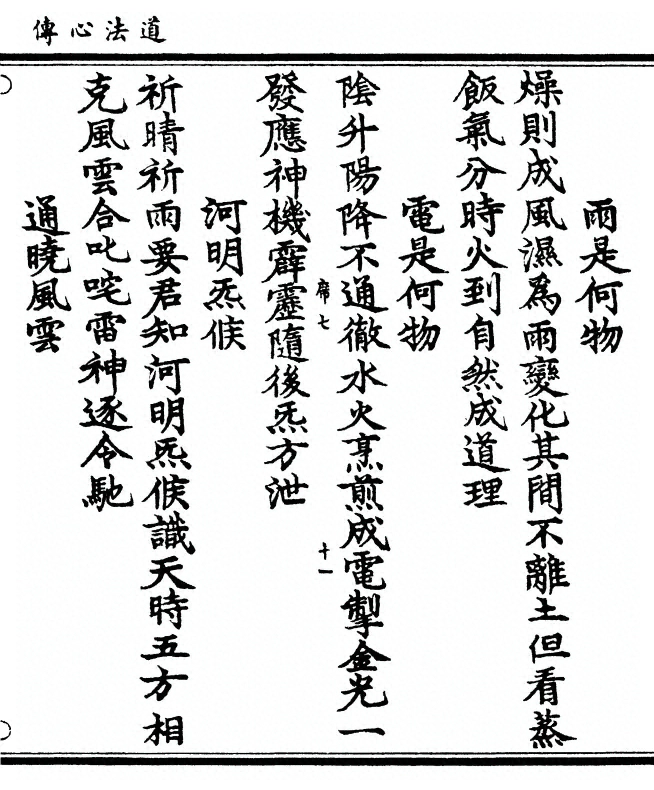 道法心傳
雨是何物
燥則成風濕為雨變化其間不離土但看蒸
飯氣分時火到自然成道理
電是何物
陰升陽降不通徹水火烹煎成電掣金光一
席七
十一
發應神機霹靂隨後炁方泄
河明炁候
祈晴祈雨要君知河明炁候識天時五方相
克風雲合叱咤雷神逐令馳
通曉風雲